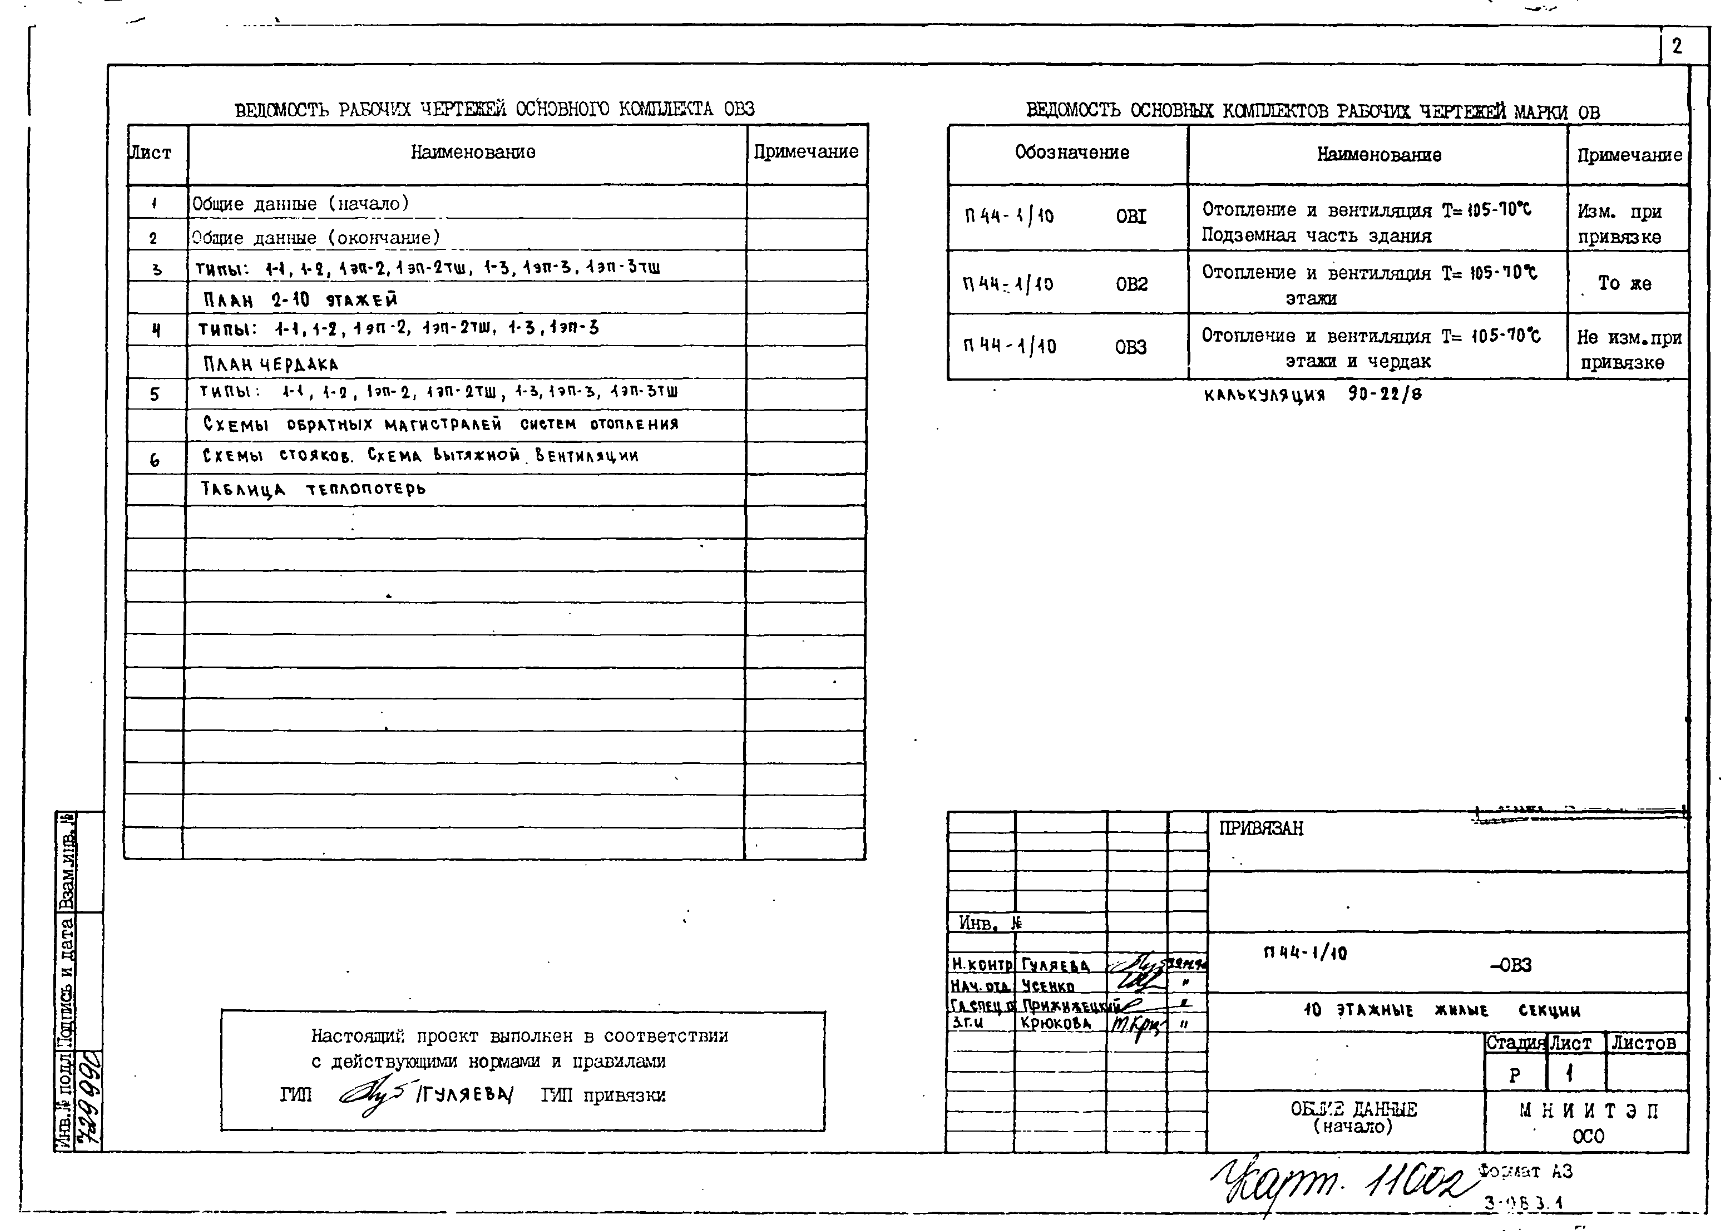 2
ВЕДОМОСТЬ РАБОЧИХ ЧЕРТЕЖЕЙ ОСНОВНОГО КОМПЛЕКТА ОВ3
Лист Наименование Примечание
1 Общие данные (начало)
2 Общие данные (окончание)
3 типы: 1-1, 1-2, 1эп-2, 1эп-2тш, 1-3, 1эп-3, 1эп-3тш
План 2-10 этажей
4 типы: 1-1, 1-2, 1эп-2, 1эп-2тш, 1-3, 1эп-3
План чердака
5 типы: 1-1, 1-2, 1эп-2, 1эп-2тш, 1-3, 1эп-3, 1эп-3тш
Схемы обратных магистралей систем отопления
6 Схемы стояков. Схема вытяжной вентиляции
Таблица теплопотерь
ВЕДОМОСТЬ ОСНОВНЫХ КОМПЛЕКТОВ РАБОЧИХ ЧЕРТЕЖЕЙ МАРКИ ОВ
Обозначение Наименование Примечание
П44-1/10 ОВ1 Отопление и вентиляция Т=105-70°С Изм. при
Подземная часть здания привязке
П44-1/10 ОВ2 Отопление и вентиляция Т=105-70°С То же
этажи
П44-1/10 ОВ3 Отопление и вентиляция Т=105-70°С Не изм.при
этажи и чердак привязке
Калькуляция 90-22/8
Настоящий проект выполнен в соответствии
с действующими нормами и правилами
ГИП /ГУЛЯЕВА/ ГИП привязки
Взам.инв.№
Подпись и дата
Инв.№ подл
729990
ПРИВЯЗАН
Инв. №
Н.контр Гуляева
Нач.отд Усенко "
Гл.спец Прижижецкий "
З.г.и Крюкова "
П44-1/10 -ОВ3
10 этажные жилые секции
Стадия Лист Листов
Р 1
ОБЩИЕ ДАННЫЕ
(начало)
МНИИТЭП
ОСО
Карт. 11002
Формат А3
3-ОВ3.1